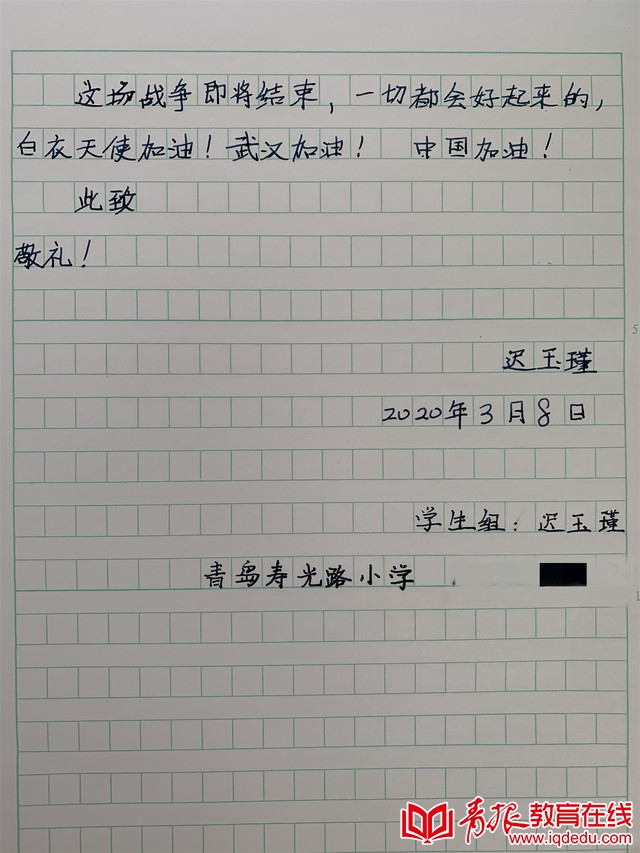 这场战争即将结束，一切都会好起来的，
白衣天使加油！武汉加油！ 中国加油！
此致
敬礼！
5
迟玉瑾
2020年3月8日
学生组：迟玉瑾
青岛寿光路小学
1
青报教育在线
www.iqdedu.com